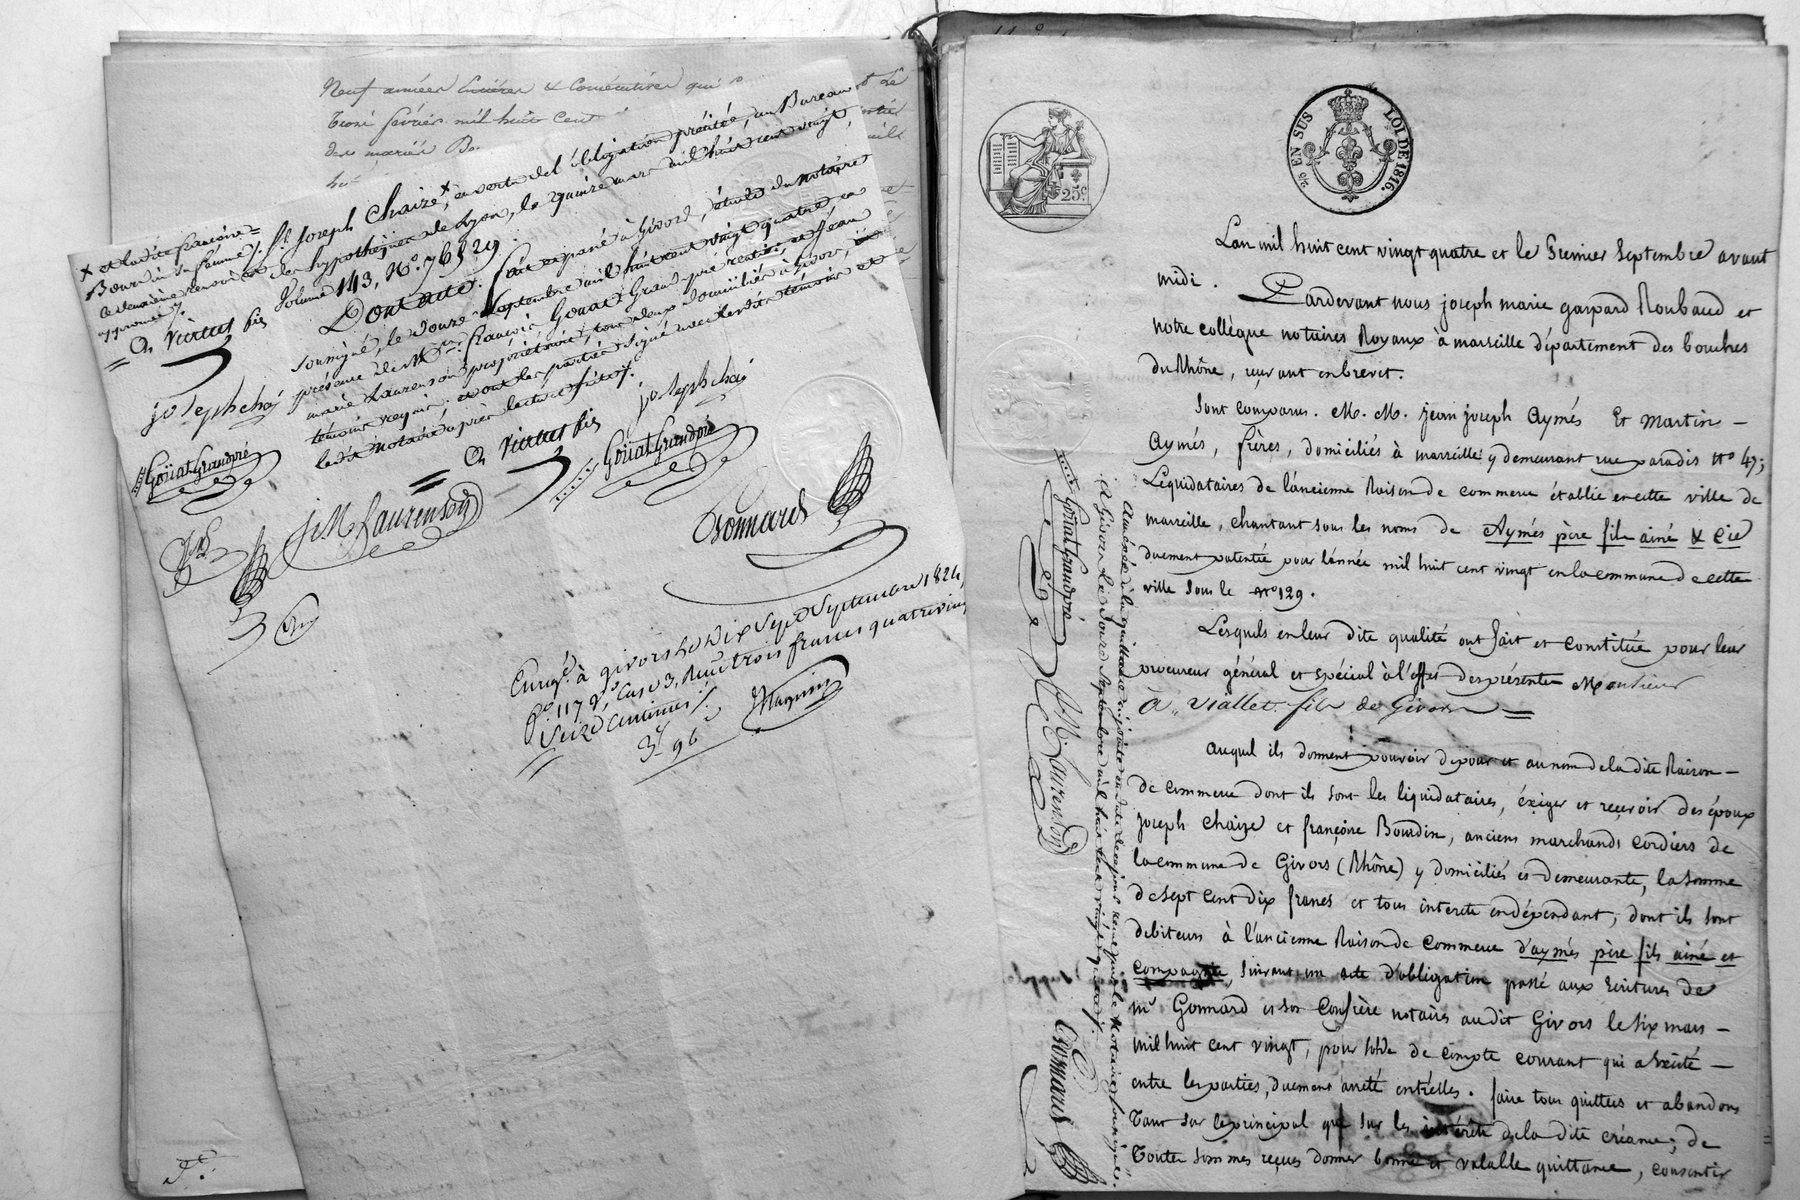 Neuf années entières & consécutives qui
trois février mil huit cent
des mariés Bo
x et la dite françoise
Bourdin sa femme
approuvé
St. Joseph Chaize x, en vertu de l'obligation précitée, au Bureau
des hypothèques de Lyon, le quinze mars mil huit cent vingt,
Volume 143, No. 76529.
Dont acte. fait et passé à Givors, étude du notaire
soussigné, le douze septembre mil huit cent vingt quatre, en
présence de Mrs. françois Goüat Grand-pré rentier, et Jean
marie Laurenson propriétaire, tous deux domiciliés à Givors,
témoins requis. et ont les parties signé avec lesdits témoins et
ledit notaire après lecture faite.
A Viallet fils
joseph chaiz
A Viallet fils
joseph chaiz
Goüat Grandpré
Goüat Grandpré
J M Laurenson
Gonnard
Enregé. à givors le dix sept Septembre 1824,
fo. 117 vo, Case 3, Reçu trois francs quatrevingt
Seize centimes
3f 96
EN SUS
LOI DE 1816.
25c.
L'an mil huit cent vingt quatre et le Premier Septembre avant
midi.
Pardevant nous joseph marie gaspard Roubaud et
notre collègue notaires Royaux à marseille département des bouches
du Rhône, recevant en brevet.
Sont comparus. M. M. jean joseph Aymés Et Martin
Aymés, frères, domiciliés à marseille y demeurant rue paradis No 47;
Liquidataires de l'ancienne Raison de commerce établie en cette ville de
marseille, chantant sous les noms de Aymés père fils ainé & Cie
duement patentée pour l'année mil huit cent vingt en la commune de cette
ville sous le No 129.
Lesquels en leur dite qualité ont fait et constitué pour leur
procureur général et spécial à l'effet des présentes Monsieur
A. Viallet fils de Givors
Auquel ils donnent pouvoir de pour et au nom de la dite Raison
de commerce dont ils sont les liquidataires, éxiger et reçevoir des époux
joseph Chaize et françoise Bourdin, anciens marchands cordiers de
la commune de Givors (Rhône) y domiciliés et demeurants, la somme
de sept cent dix francs et tous interets en dépendant, dont ils sont
debiteurs à l'ancienne Raison de commerce d'aymés père fils ainé et
compagnie, suivant un acte d'obligation passé aux Ecritures de
Me Gonnard et son Confrère notaires audit Givors le six mars
mil huit cent vingt, pour solde de compte courant qui a existé
entre les parties, duement arrêté entr'elles. faire tous quittus et abandons
Tant sur le principal que sur les intérêts de la dite créance; de
Toutes sommes reçues donner bonne et valable quittance, consentir
Annéxé à la quittance
à Givors le douze Septembre mil huit cent vingt quatre
Goüat Grandpré
J M Laurenson
Gonnard